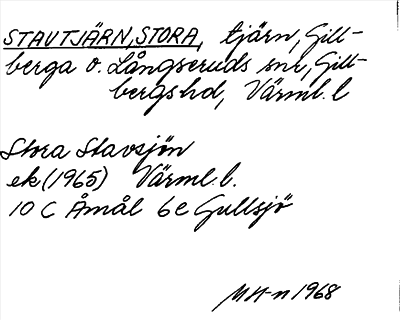 STAVTJÄRN, STORA, tjärn, Gill-
berga o. Långseruds snr, Gill-
bergs hd, Värml. l
Stora Stavsjön
ek (1965) Värml. l.
10 C Åmål 6 e Gullsjö
MH-n 1968